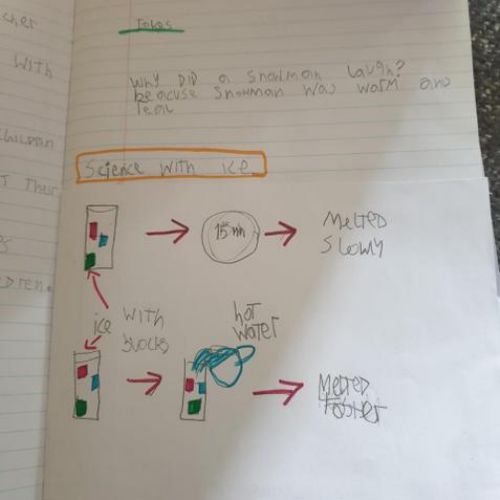 cher
Jokes
With
Why DiD a Snowman laugh?
beacuse Snowman was warm and
Science With ice
15 min
Melted
Slowly
ice With
blocks
hot
water
Melted
Faster